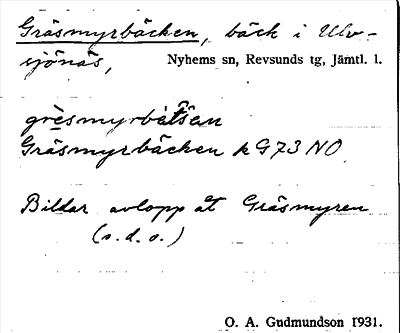 Gräsmyrbäcken, bäck i Ulv-
sjönäs, Nyhems sn, Revsunds tg, Jämtl. l.
Gräsmyrbäcken k G73 NO
Bildar avlopp åt Gräsmyren
(s.d.o.)
O. A. Gudmundson 1931.